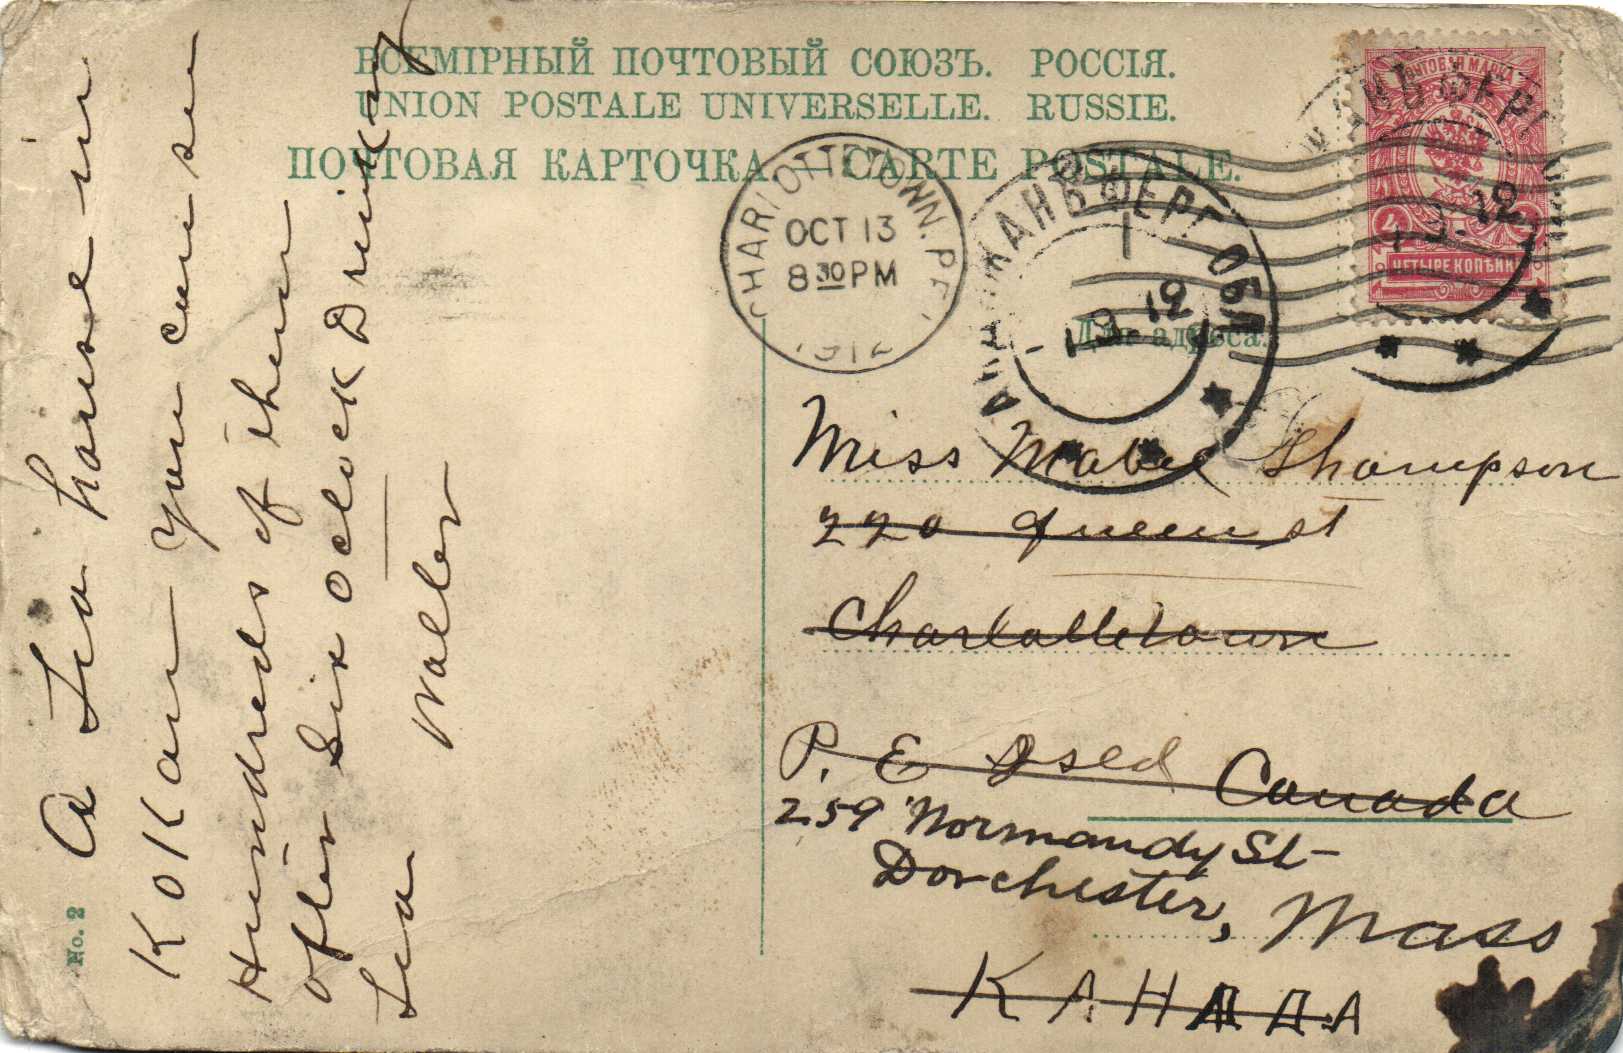 ВСЕМІРНЫЙ ПОЧТОВЫЙ СОЮЗЪ. РОССІЯ.
UNION POSTALE UNIVERSELLE. RUSSIE.
ПОЧТОВАЯ КАРТОЧКА. — CARTE POSTALE.
ПОЧТОВАЯ МАРКА
4
ЧЕТЫРЕ КОПѢЙКИ
CHARLOTTETOWN. P.E.I.
OCT 13
8 30 PM
1912
АНДИЖАНЪ ФЕРГ. ОБЛ.
1 9 12
Для адреса.
Miss Mabel Thompson
220 Queen st
Charlalletown
P. E Ised Canada
259 Normandy St-
Dorchester, Mass
КАНАДА
A Tea house in
KoKan you can see
Hundreds of them
after Six oclock Drinking
Tea Walter
No. 2